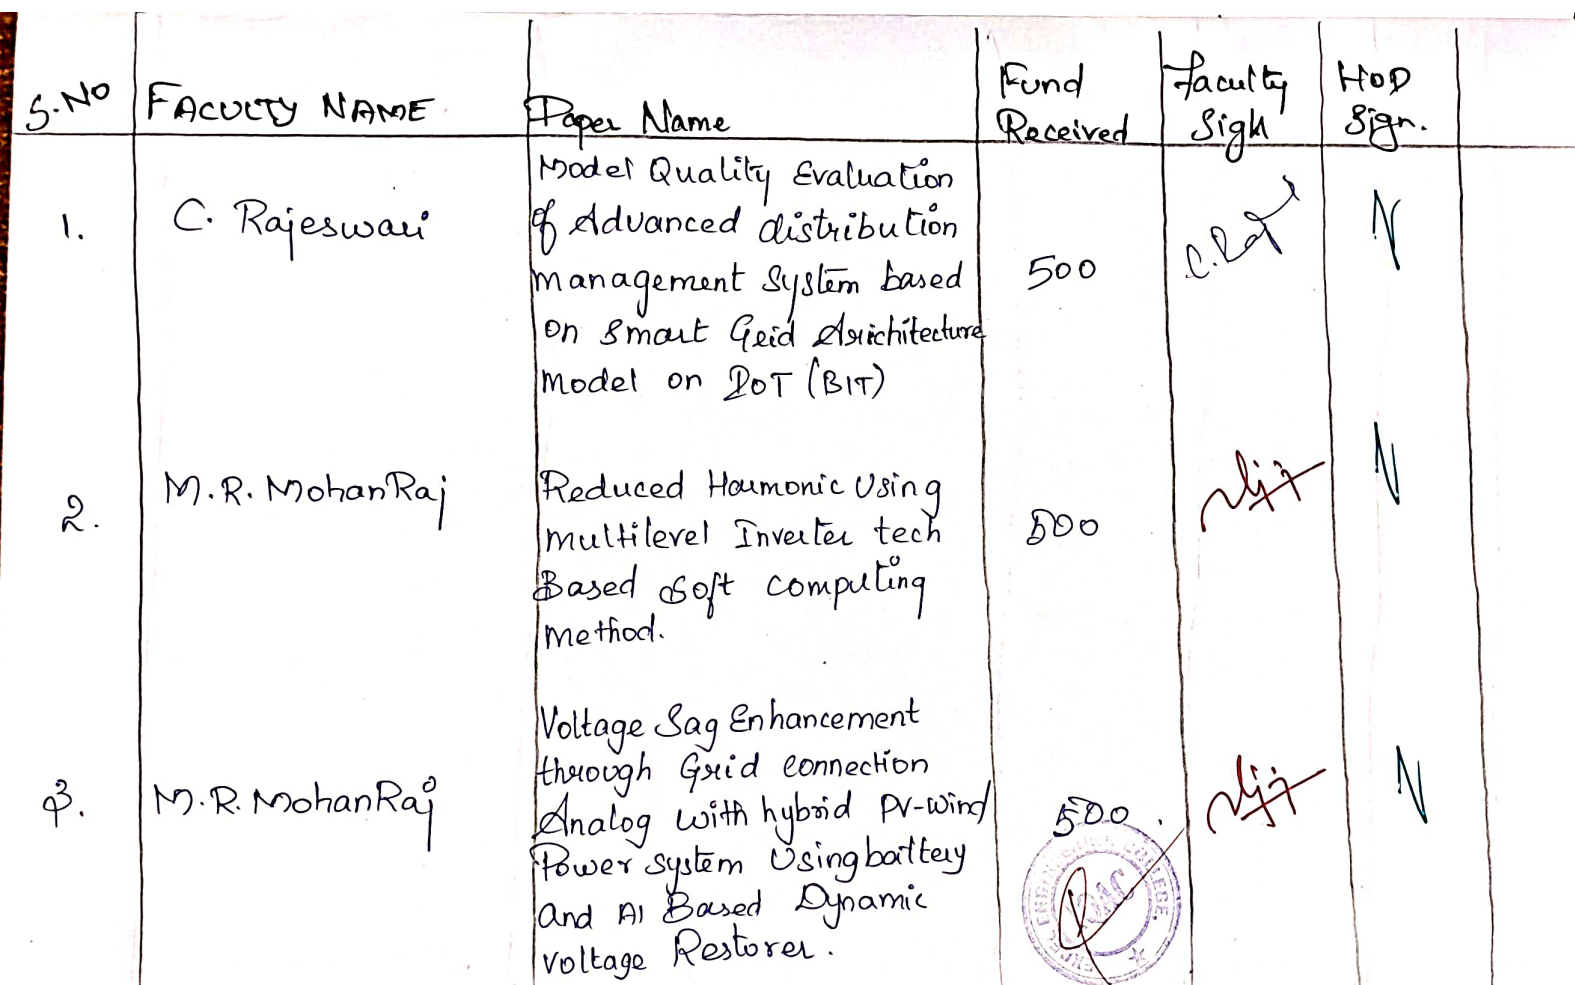 S.NO FACULTY NAME Paper Name Fund Received Faculty Sign HOD Sign.
1. C. Rajeswari 500 C. Raj N
Model Quality Evaluation
of Advanced distribution
management System based
on Smart Grid Arichitecture
Model on IOT (BIT)
2. M.R. MohanRaj 500 N
Reduced Harmonic Using
multilevel Inverter tech
Based Soft computing
method.
3. M.R. MohanRaj 500. N
Voltage Sag Enhancement
through Grid connection
Analog with hybrid PV-wind
Power system Using battery
and AI Based Dynamic
Voltage Restorer.
ENGINEERING COLLEGE.